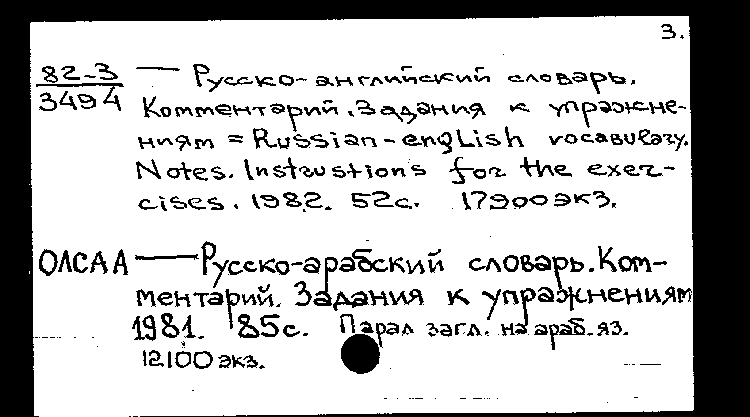 3.
82-3 — Русско-английский словарь.
3494 Комментарий. Задания к упражне-
ниям = Russian-english vocabulary.
Notes. Instrustions for the exer-
cises. 1982. 52с. 17900 экз.
ОЛСАА — Русско-арабский словарь. Ком-
ментарий. Задания к упражнениям
1981. 85с. Парал загл. на араб. яз.
12.100 экз.